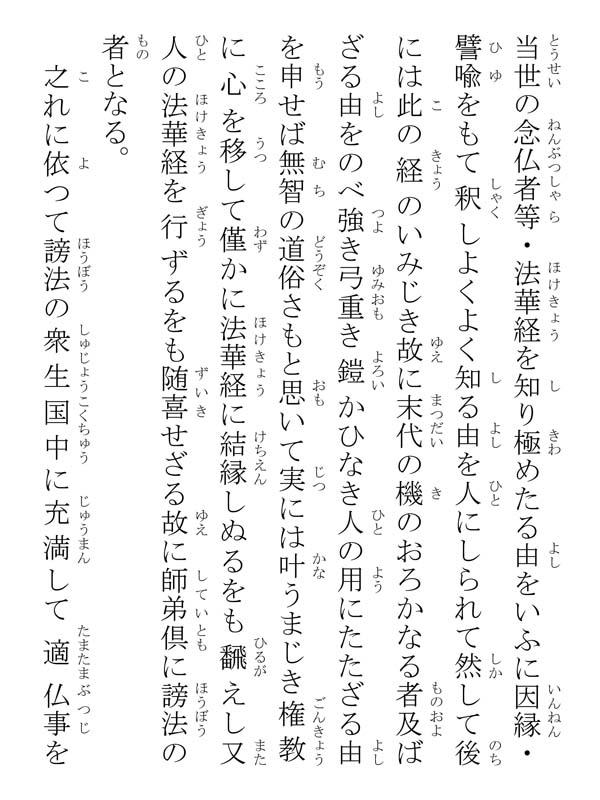 当世の念仏者等・法華経を知り極めたる由をいふに因縁・
譬喩をもて釈しよくよく知る由を人にしられて然して後
には此の経のいみじき故に末代の機のおろかなる者及ば
ざる由をのべ強き弓重き鎧かひなき人の用にたたざる由
を申せば無智の道俗さもと思いて実には叶うまじき権教
に心を移して僅かに法華経に結縁しぬるをも飜えし又
人の法華経を行ずるをも随喜せざる故に師弟倶に謗法の
者となる。
之れに依つて謗法の衆生国中に充満して適仏事を